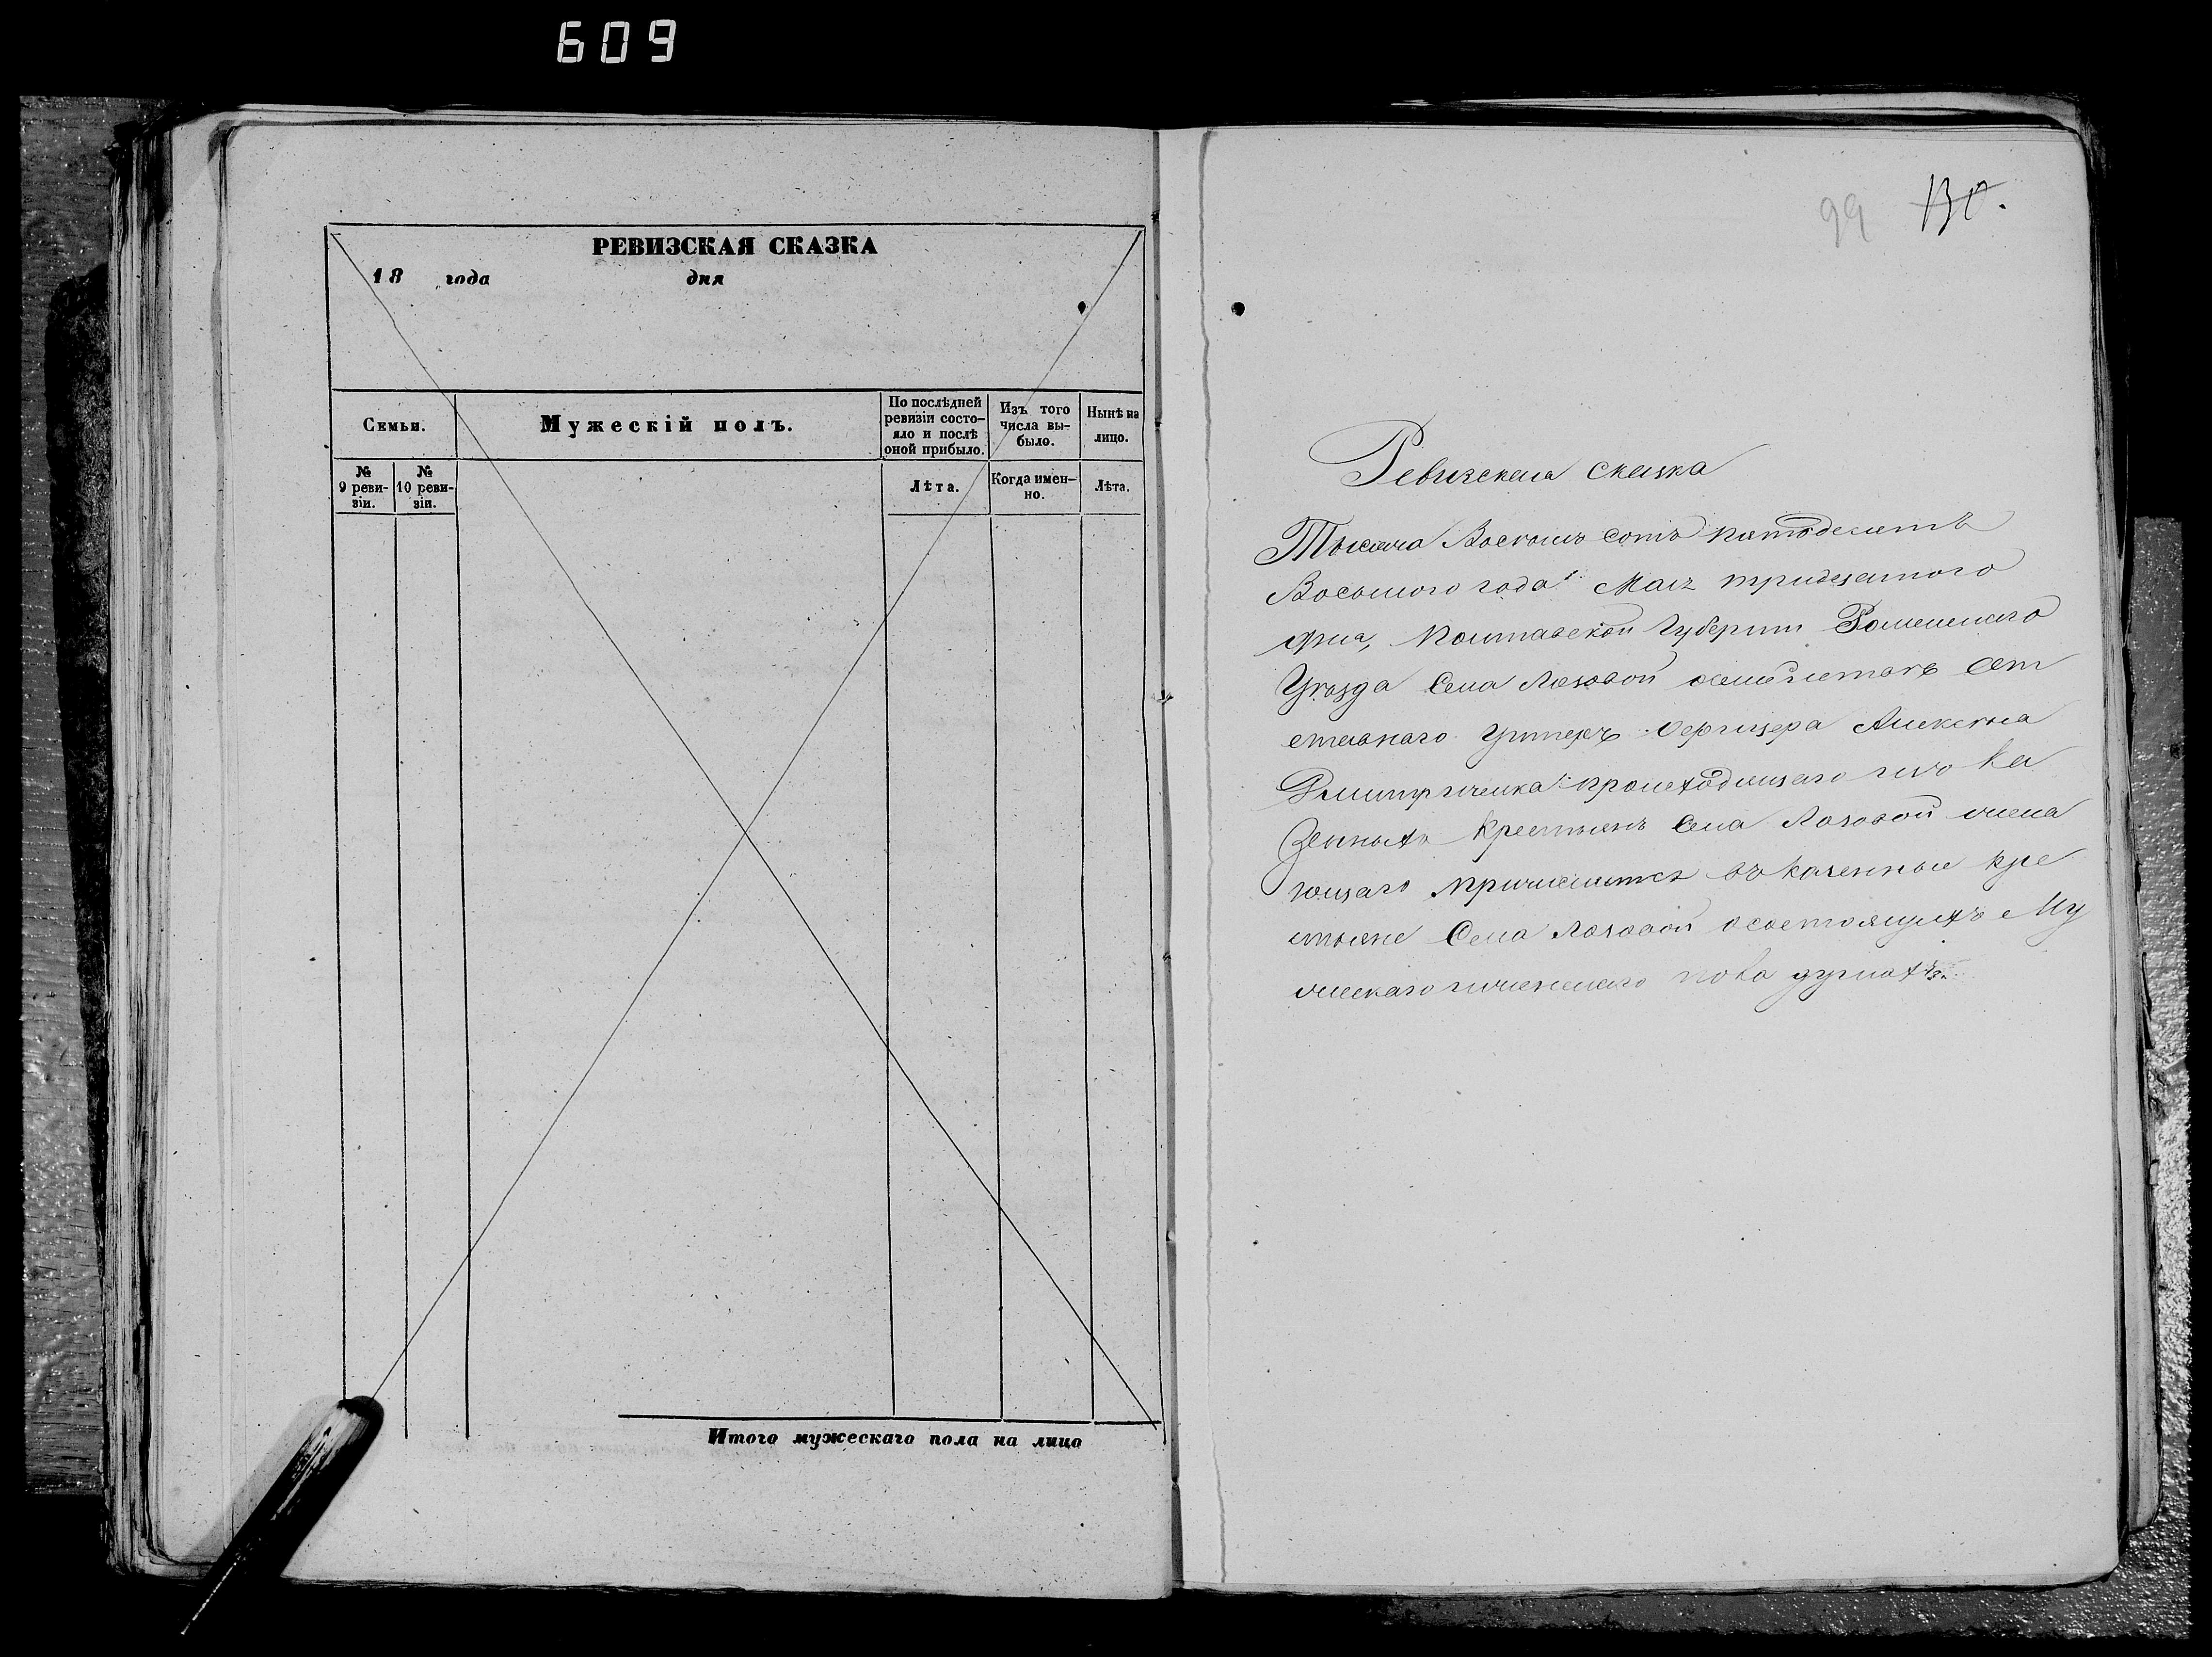 609
РЕВИЗСКАЯ СКАЗКА
18 года дня
Семьи.
Мужескій полъ.
По послѣдней ревизіи состо-
яло и послѣ оной прибыло.
Изъ того числа вы-
было.
Нынѣ на лицо.
№ 9 реви-
зіи.
№ 10 реви-
зіи.
Лѣта.
Когда имен-
но.
Лѣта.
Итого мужескаго пола на лицо
99 130.
Ревизская сказка
Тысяча Восемь сотъ пятьдесятъ
Восьмого года Мая тридцатого
дня, Полтавской Губерніи Роменского
Уѣзда Села Лозовой от
ставнаго Унтеръ-Офицера Алексѣя
Дмитриченка происходящаго изъ Ка
зенныхъ Крестьянъ Села Лозовой жела
ющаго въ казенные кре
стьяне Села Лозовой о состоящихъ Му
жескаго и женскаго пола душахъ.